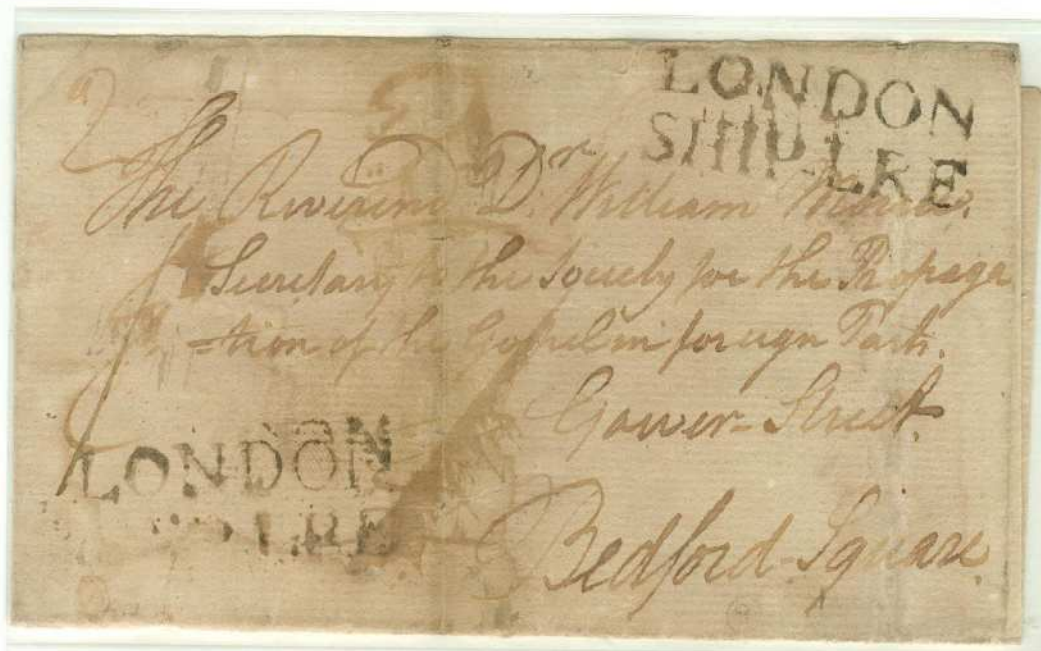 LONDON
SHIP-LRE
2
The Reverend Dr. William
Secretary to the Society for the Propaga
-tion of the Gospel in foreign Parts.
Gower-Street.
Bedford-Square.
LONDON
LRE